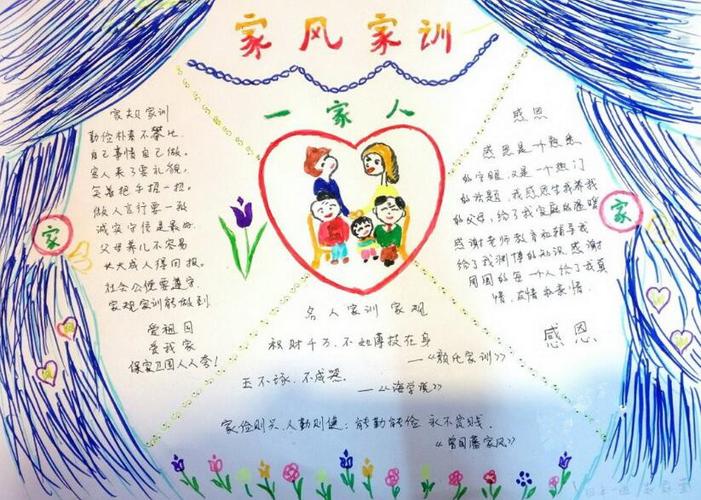 家风家训
一家人
家规家训
勤俭朴素不攀比
自己事情自己做。
客人来了要礼貌,
笑着把手握一握。
做人言行要一致
诚实守信是最好
父母养儿不容易
长大成人得回报。
社会公德要遵守
家规家训能做到
爱祖国
爱我家
保家卫国人人夸!
家
感恩
感恩是一个熟悉
的字眼,又是一个热门
的话题,我感恩生我养我
的父母,给了我家庭的温暖
感谢老师教育和辅导我
给了我渊博的知识.感谢
周围的每一个人给了我真
情、友情和亲情.
感恩
家
名人家训家规
积财千万,不如薄技在身
—《颜氏家训》
玉不琢,不成器
—《诲学说》
家俭则兴,人勤则健;能勤能俭永不贫贱.
《曾国藩家风》